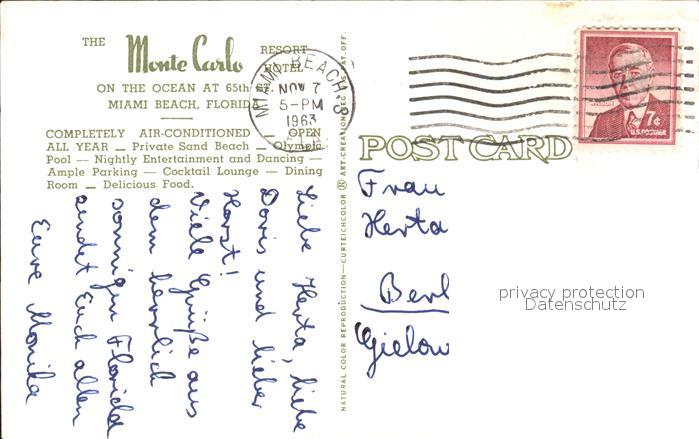 THE Monte Carlo RESORT HOTEL
ON THE OCEAN AT 65th ST.
MIAMI BEACH, FLORIDA
COMPLETELY AIR-CONDITIONED — OPEN
ALL YEAR — Private Sand Beach — Olympic
Pool — Nightly Entertainment and Dancing —
Ample Parking — Cocktail Lounge — Dining
Room — Delicious Food.
MIAMI BEACH
NOV 7
5-PM
1963
Liebe Herta, liebe
Doris und lieber
Horst!
Viele Grüße aus
dem herrlich
sonnigen Florida
sendet Euch allen
Eure Monika
NATURAL COLOR REPRODUCTION—CURTEICHCOLOR ® ART-CREATION
POST CARD
7¢
U.S. POSTAGE
Frau
Herta
Berl
Gielow
privacy protection
Datenschutz